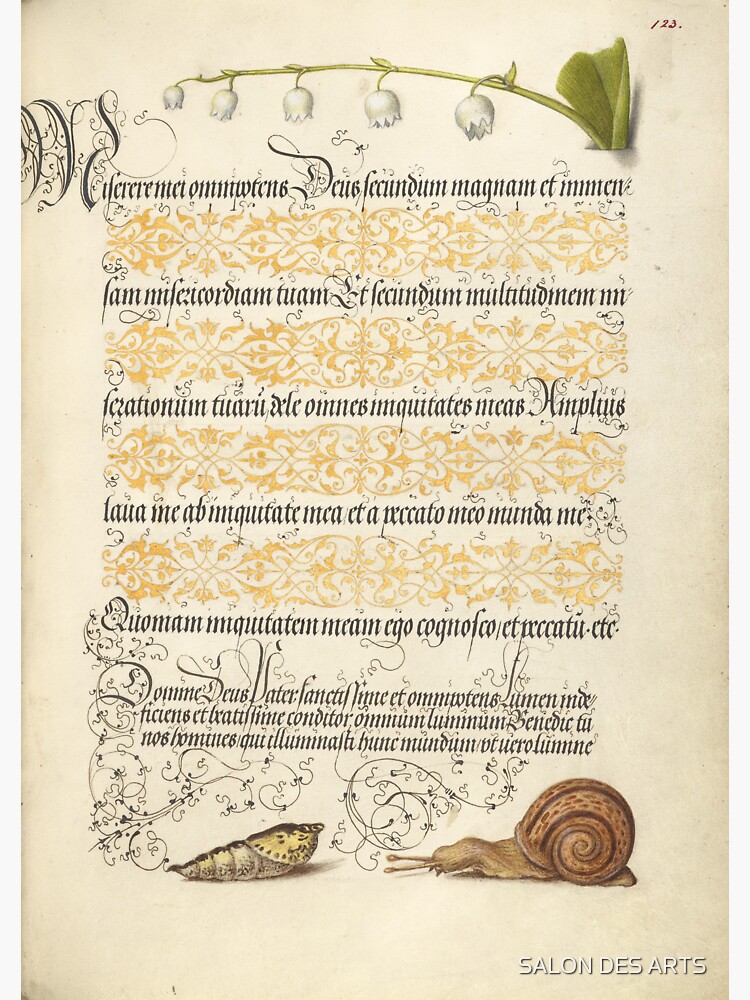 123.
Miserere mei omnipotens Deus, secundum magnam et immen-
sam misericordiam tuam Et secundum multitudinem mi-
serationum tuarū, dele omnes iniquitates meas Amplius
laua me ab iniquitate mea, et a peccato meo munda me.
Quoniam iniquitatem meam ego cognosco, et peccatū. etc.
Domine Deus Pater sanctissime et omnipotens Lumen inde-
ficiens et beatissime conditor, omnium luminum Benedic tu
nos homines, qui illuminasti hunc mundum, vt vero lumine
SALON DES ARTS